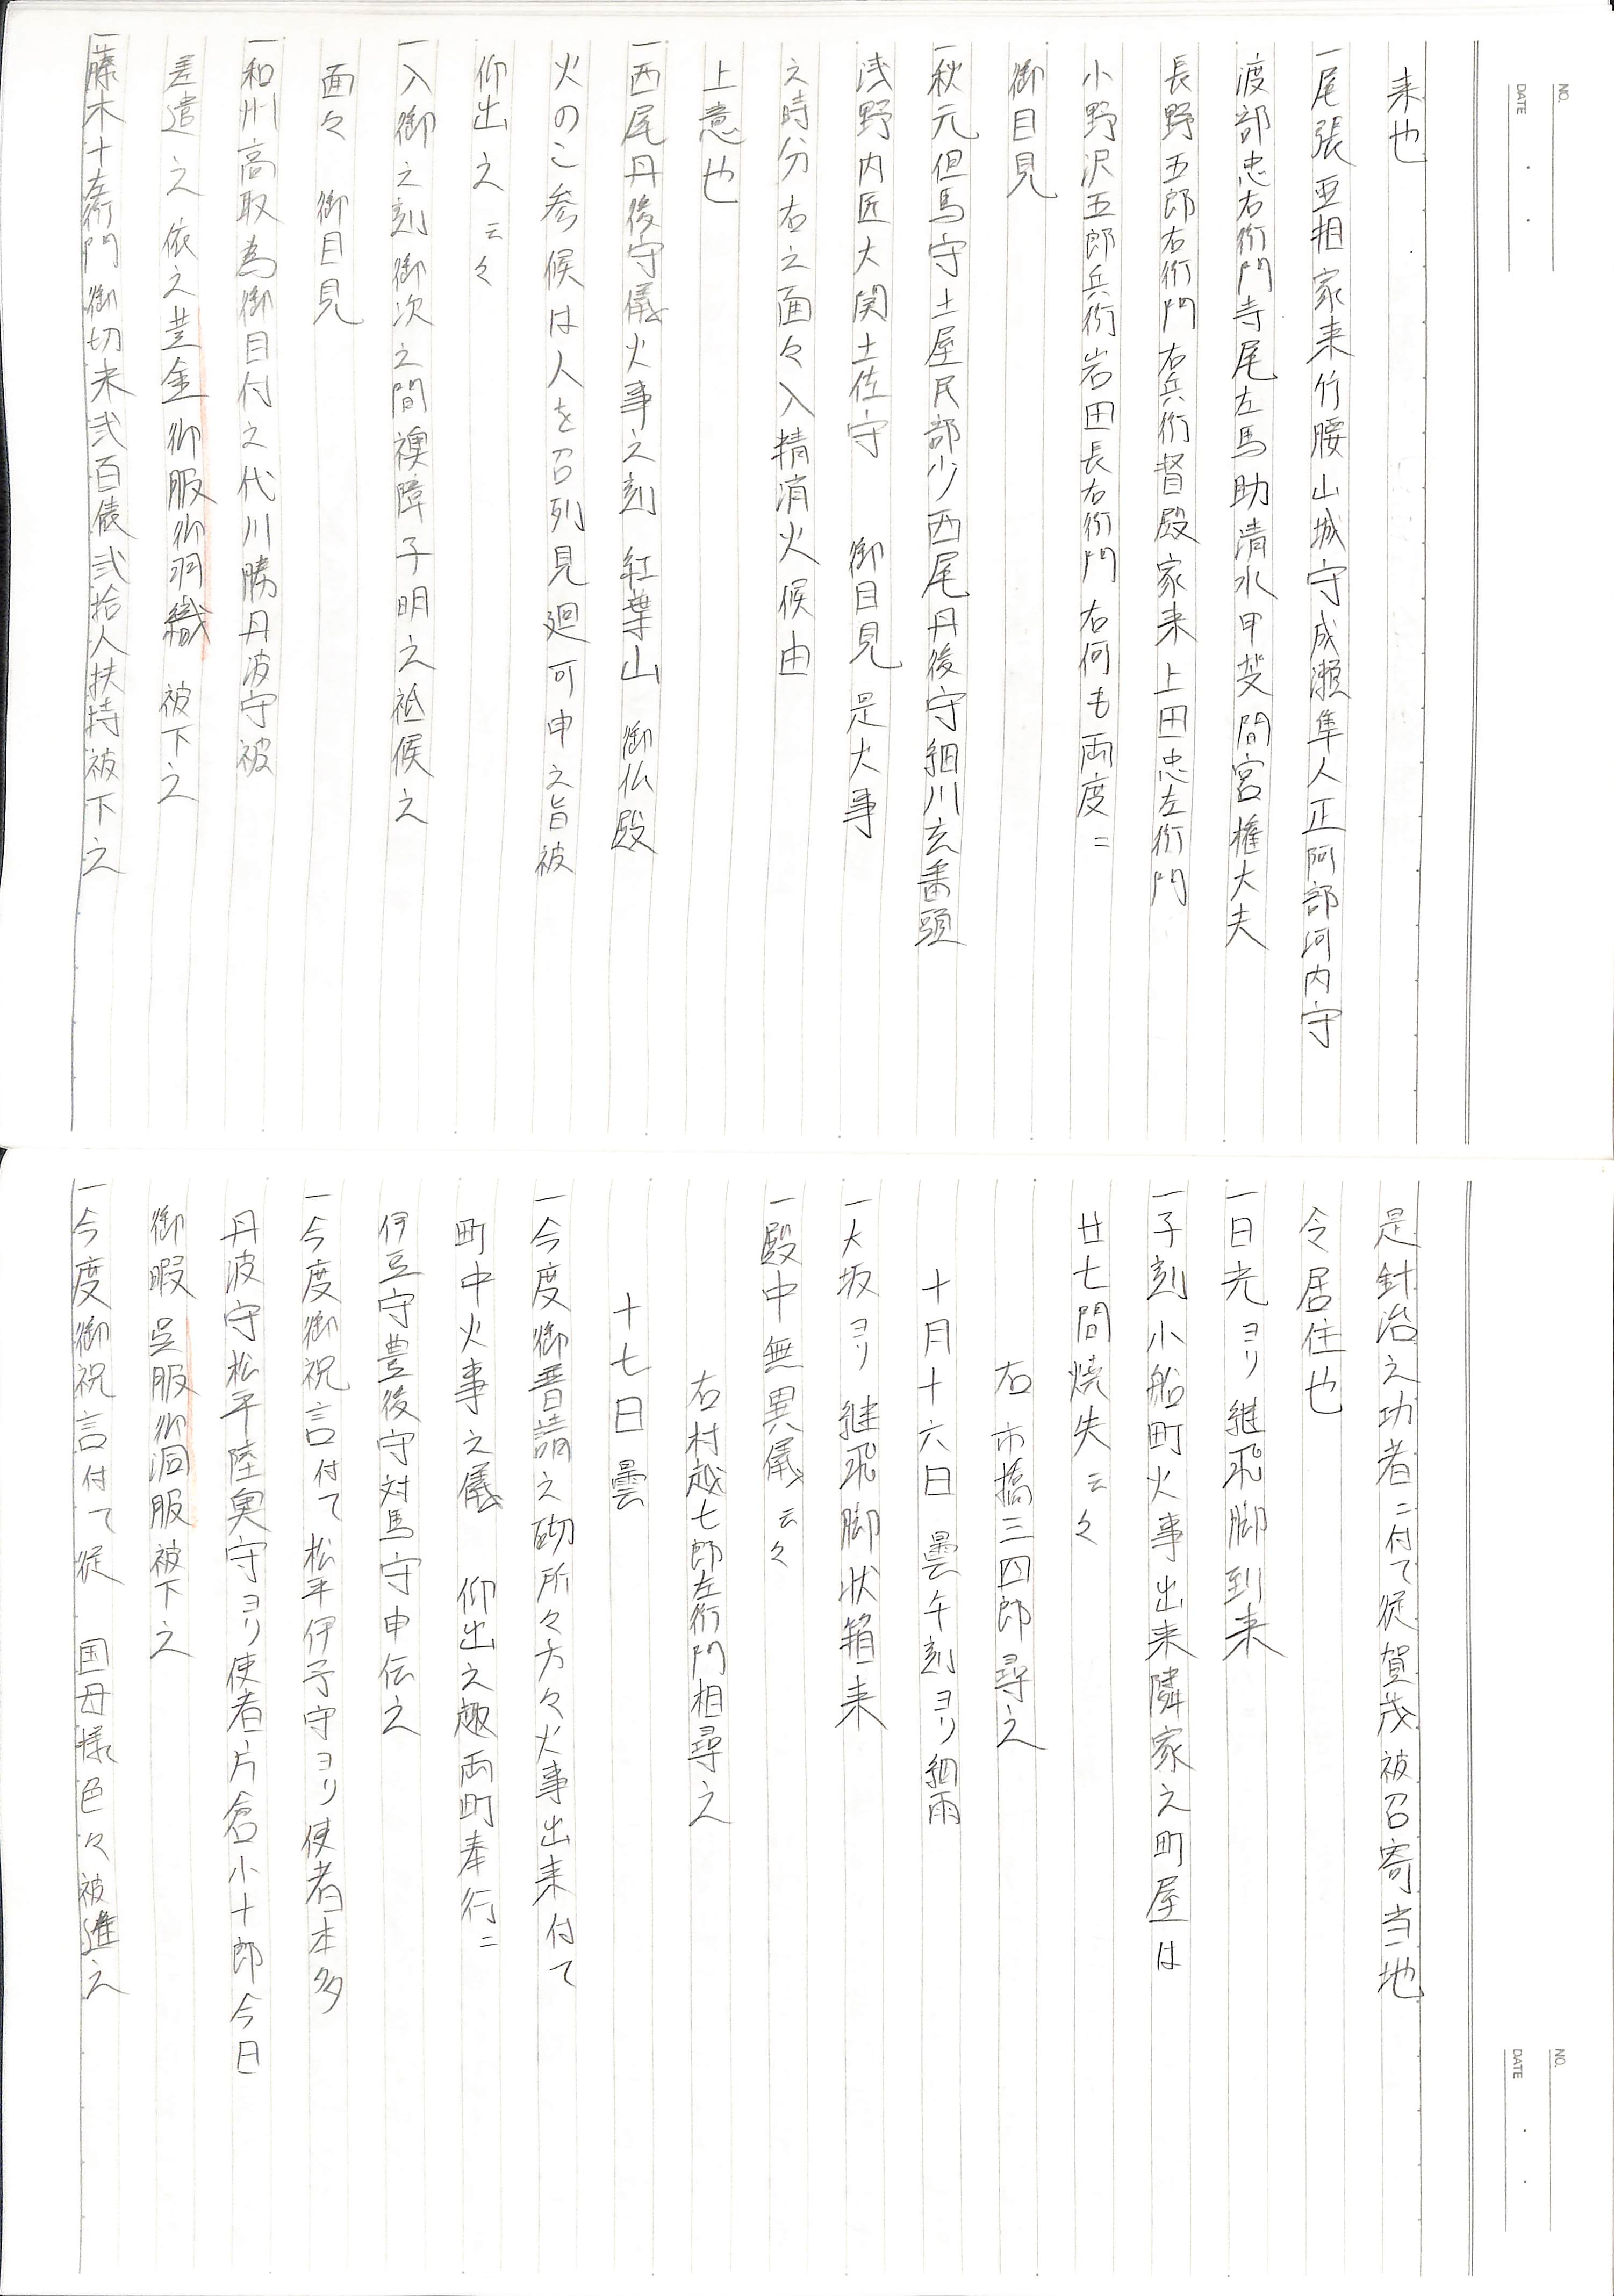 NO.
DATE
来也
一尾張亜相家来竹腰山城守成瀬隼人正阿部河内守
渡部忠右衛門寺尾左馬助清水甲斐間宮権大夫
長野五郎右衛門右兵衛督殿家来上田忠左衛門
小野沢五郎兵衛岩田長右衛門右何も両度ニ
御目見
一秋元但馬守土屋民部少西尾丹後守細川玄蕃頭
浅野内匠大関土佐守 御目見是火事
之時分右之面々入精消火候由
上意也
一西尾丹後守儀火事之刻紅葉山 御仏殿
火のこ参候は人を召列見廻可申之旨被
仰出之云々
一入御之刻御次之間襖障子明之祗候之
面々 御目見
一和州高取為御目付之代川勝丹波守被
差遣之依之黄金御服御羽織 被下之
一藤木十左衛門御切米弐百俵弐拾人扶持被下之
NO.
DATE
是針治之功者ニ付て従賀茂被召寄当地
令居住也
一日光ヨリ継飛脚到来
一子刻小船町火事出来隣家之町屋は
廿七間焼失云々
右市橋三四郎尋之
十月十六日 曇午刻ヨリ細雨
一大坂ヨリ継飛脚状箱来
一殿中無異儀云々
右村越七郎左衛門相尋之
十七日 曇
一今度御普請之砌所々方々火事出来付て
町中火事之儀 仰出之趣両町奉行ニ
伊豆守豊後守対馬守申伝之
一今度御祝言付て松平伊予守ヨリ使者本多
丹波守松平陸奥守ヨリ使者片倉小十郎今日
御暇呉服御洞服被下之
一今度御祝言付て従 国母様色々被進之